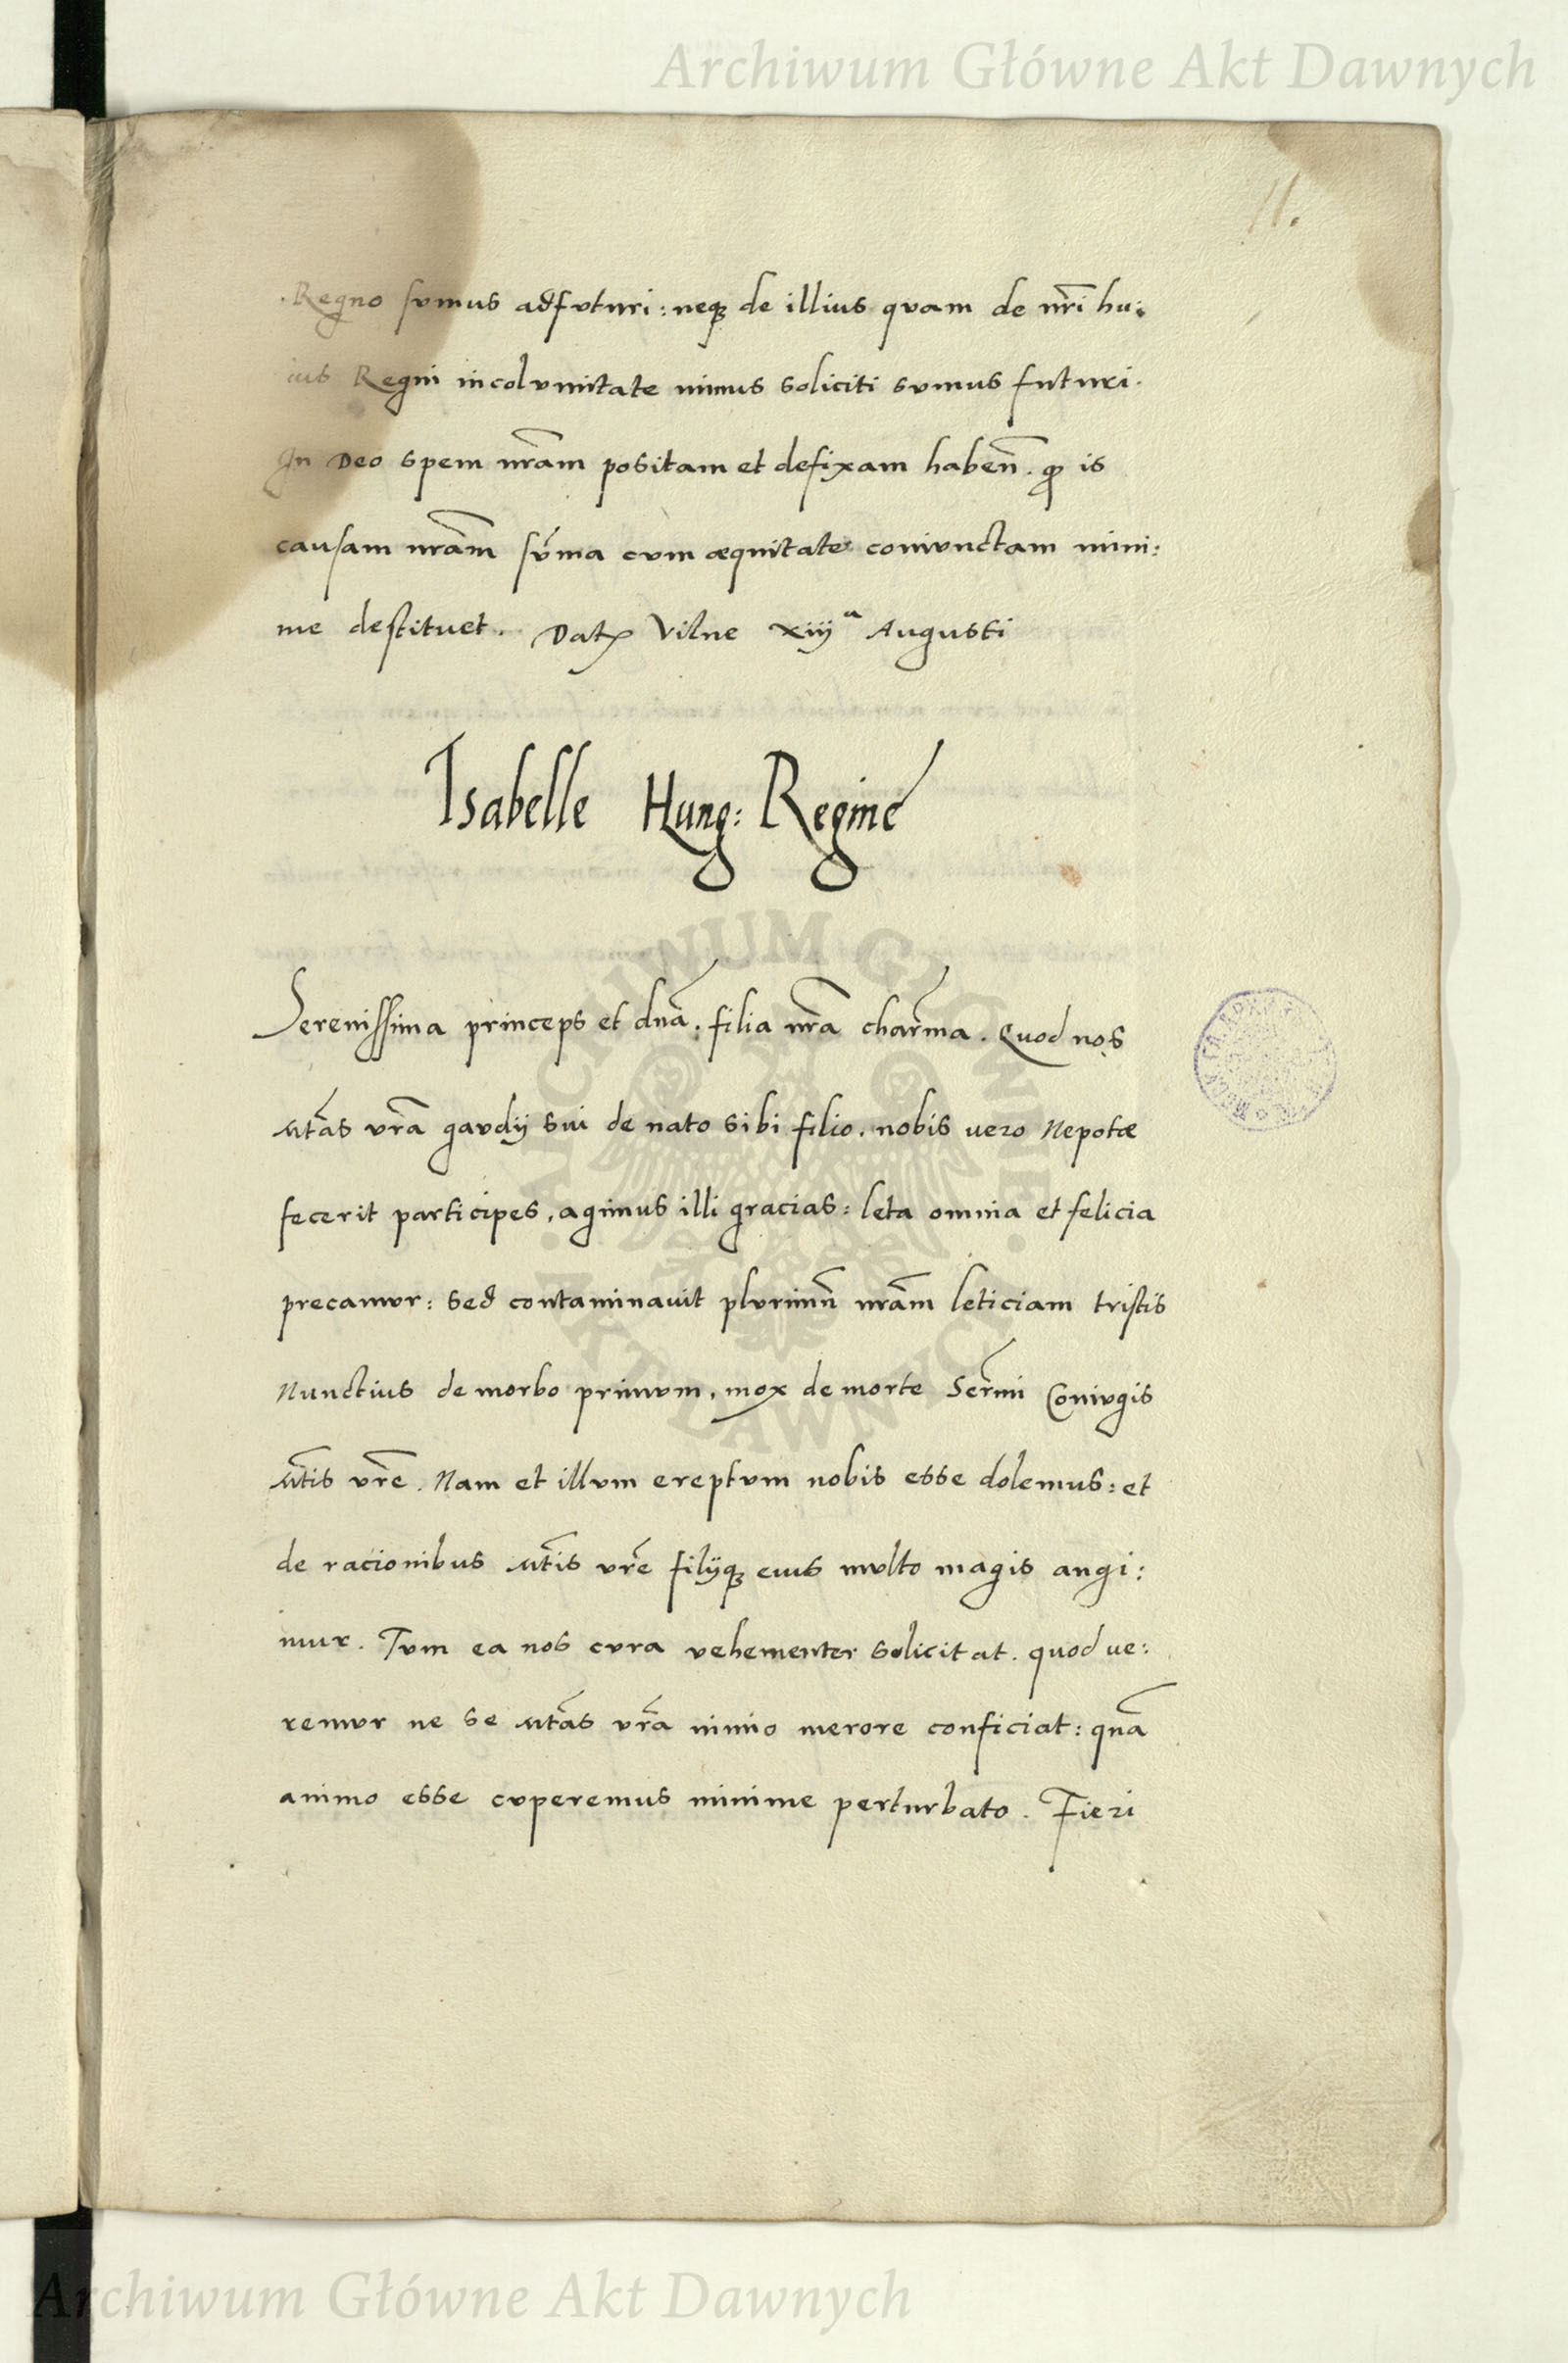 Archiwum Główne Akt Dawnych
11.
Regno sumus adfuturi: neqꝫ de illius quam de nr̃i hu:
ius Regni incolumitate minus soliciti sumus futuri.
In Deo spem nr̃am positam et defixam habeñ. ꝙ is
causam nr̃am sum̃a cum æquitate coniunctam mini:
me destituet. Datꝭ Vilne xiijᵃ Augusti
Isabelle Hung: Regine
Serenissima princeps et dñа. filia nr̃a char̃ma. Quod nos
Mt̃as vr̃a gaudij sui de nato sibi filio. nobis vero Nepote
fecerit participes, agimus illi gracias: leta omnia et felicia
precamur: sed contaminauit plurimũ nr̃am leticiam tristis
Nunctius de morbo primum, mox de morte Ser̃mi Coniugis
Mt̃is vr̃e. Nam et illum ereptum nobis esse dolemus: et
de racionibus Mt̃is vr̃e filijqꝫ eius multo magis angi:
mur. Tum ea nos cura vehementer solicitat. quod ve:
remur ne se Mt̃as vr̃a nimio merore conficiat: quã
animo esse cuperemus minime perturbato. Fieri
ARCHIWUM GŁÓWNE AKT DAWNYCH
Archiwum Główne Akt Dawnych